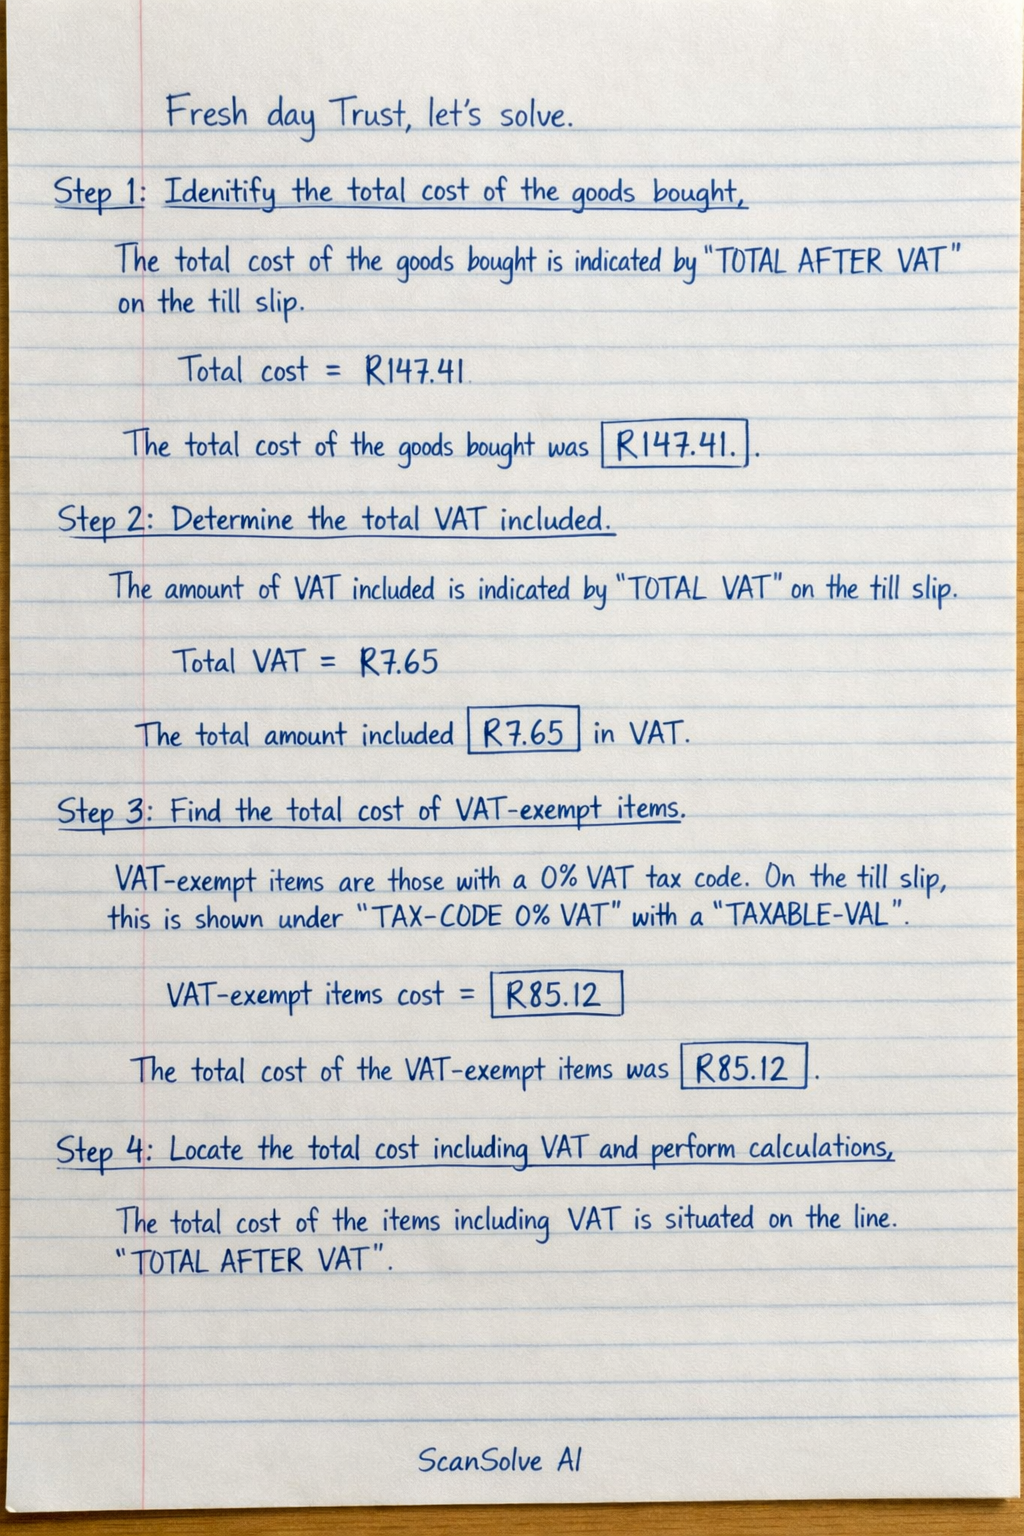 Fresh day Trust, let's solve.
Step 1: Idenitify the total cost of the goods bought,
The total cost of the goods bought is indicated by "TOTAL AFTER VAT"
on the till slip.
Total cost = R147.41
The total cost of the goods bought was R147.41. .
Step 2: Determine the total VAT included.
The amount of VAT included is indicated by "TOTAL VAT" on the till slip.
Total VAT = R7.65
The total amount included R7.65 in VAT.
Step 3: Find the total cost of VAT-exempt items.
VAT-exempt items are those with a 0% VAT tax code. On the till slip,
this is shown under "TAX-CODE 0% VAT" with a "TAXABLE-VAL".
VAT-exempt items cost = R85.12
The total cost of the VAT-exempt items was R85.12 .
Step 4: Locate the total cost including VAT and perform calculations,
The total cost of the items including VAT is situated on the line.
"TOTAL AFTER VAT".
ScanSolve AI